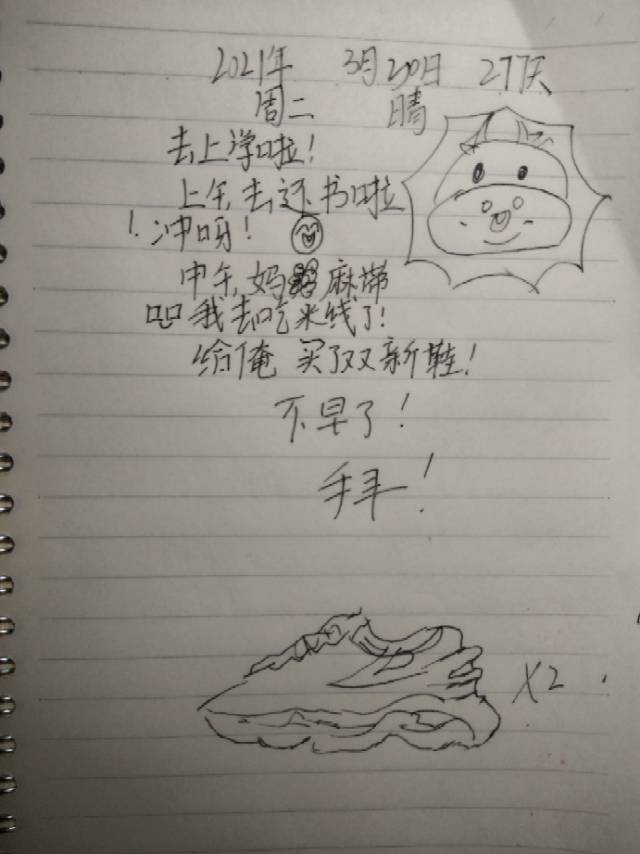 2021年 3月20日 277天
周二 晴
去上学啦!
上午,去还书啦
!冲呀!
中午,妈 麻带
我去吃米线了!
给俺 买了双新鞋!
不早了!
拜!
X2